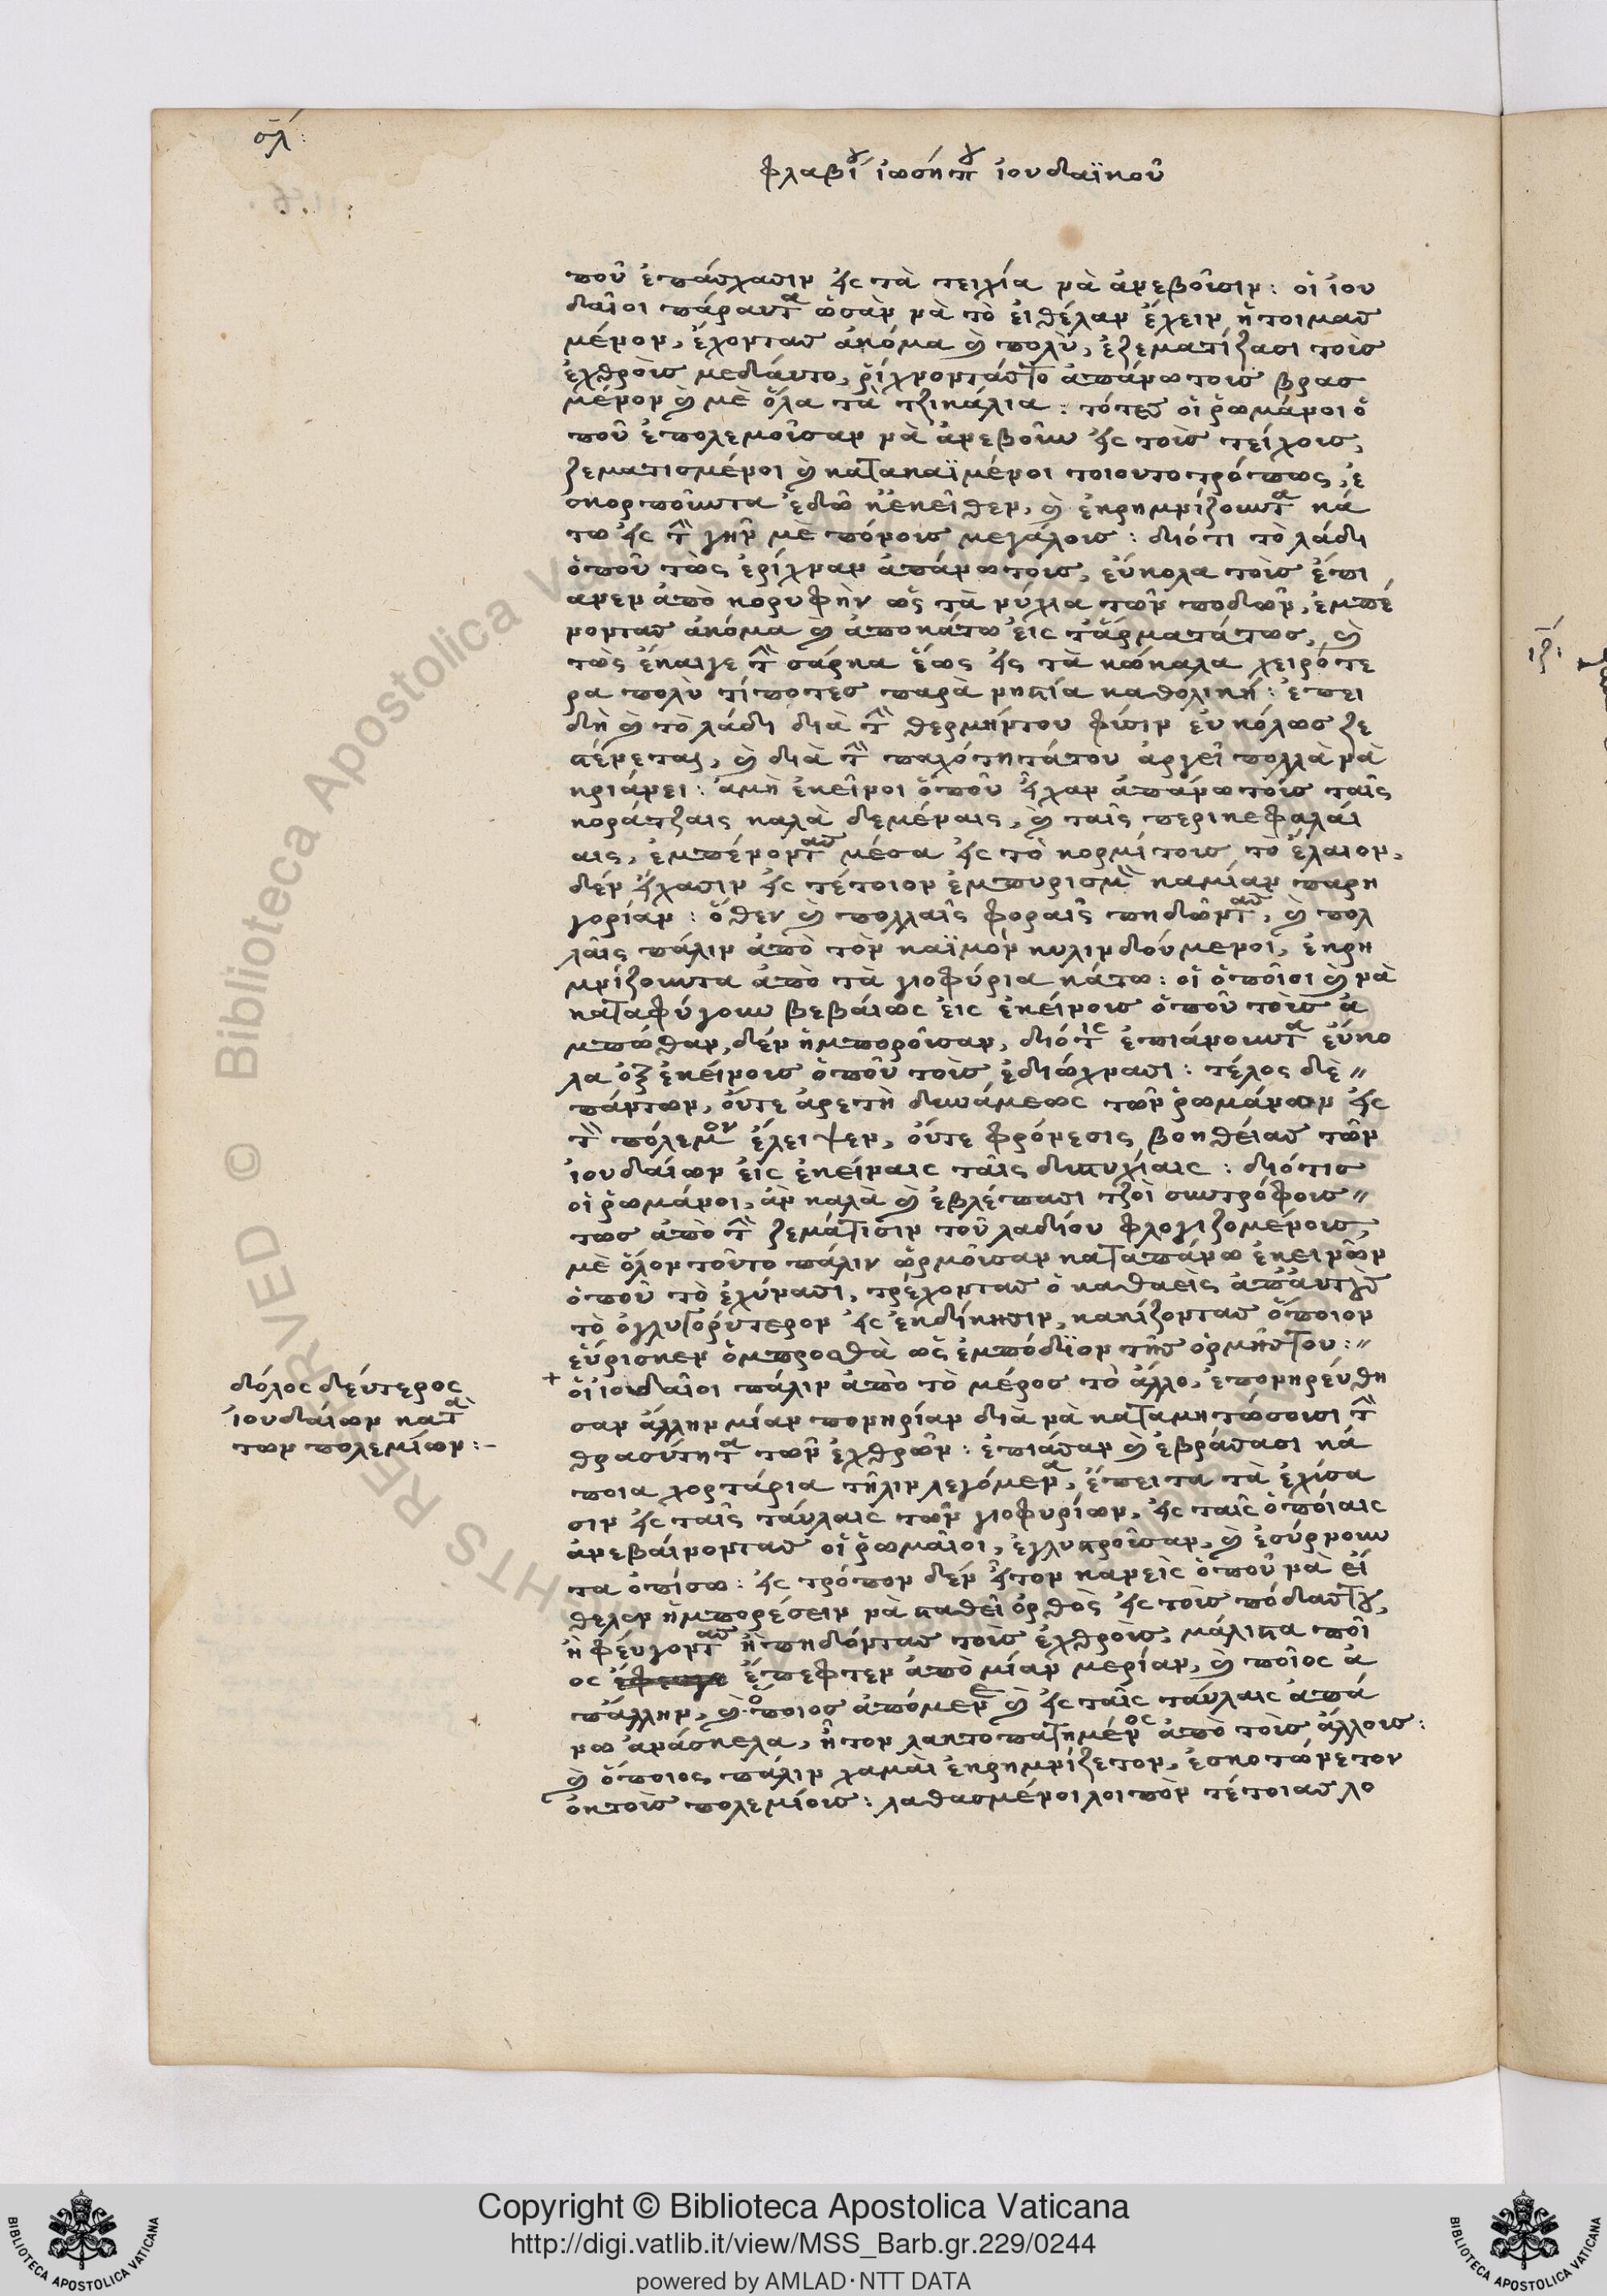 σλ:
φλαβίου ἰωσήπου ἰουδαϊκοῦ
ποῦ ἐπάσχασιν εἰς τὰ τειχία νὰ ἀνεβοῦσιν: οἱ ἰου
δαῖοι πάραυτα ὡσὰν νὰ τὸ εἰθέλαν ἔχειν ἡτοιμασ
μένον, ἔχοντας ἀκόμα καὶ πολὺ, ἐζεματίζασι τοὺς
ἐχθροὺς μεδαύτο, ῥίχνοντάς το ἀπάνω τους βρασ
μένον καὶ μὲ ὅλα τὰ τζικάλια: τότες οἱ ῥωμάνοι ὁ
ποῦ ἐπολεμοῦσαν νὰ ἀνεβοῦν εἰς τοὺς τείχους,
ζεματισμένοι καὶ κατακαϊμένοι τοιουτοτρόπως, ἐ
σκορποῦντα ἐδῶ κἐκεῖθεν, καὶ ἐκρημνίζουντα κά
τω εἰς τὴν γῆν μὲ πόνους μεγάλους: διότι τὸ λάδι
ὁποῦ τῶς ἐρίχναν ἀπάνω τους, εὔκολα τοὺς ἔπι
ανεν ἀπὸ κορυφὴν ὡς τὰ νύχια τῶν ποδῶν, ἐμπέ
νοντας ἀκόμα καὶ ἀποκάτω εἰς τἄρματάτως, καὶ
τῶς ἔκαιγε τὴν σάρκα ἕως εἰς τὰ κώκαλα χειρότε
ρα πολὺ τίποτες παρὰ νηστία καθολική: ἐπει
δὴ καὶ τὸ λάδι διὰ τὴν θερμήντου φύσιν εὐκόλως ζε
στένεται, καὶ διὰ τὴν παχότητάτου ἀργεῖ πολλὰ νὰ
κριάνει: ἀμὴ ἐκεῖνοι ὁποῦ εἶχαν ἀπάνω τους ταῖς
κοράτζαις καλὰ δεμέναις, καὶ ταῖς περικεφαλαί
αις, ἐμπένοντας μέσα εἰς τὸ κορμί τους τὸ ἔλαιον,
δέν εἴχασιν εἰς τέτοιον ἐμπυρισμὸν καμίαν παρη
γορίαν: ὅθεν καὶ πολλαῖς φοραῖς πηδῶντας, καὶ πολ
λαῖς πάλιν ἀπὸ τὸν καϊμὸν κυλινδούμενοι, ἐκρη
μνίζουντα ἀπὸ τὰ γιοφύρια κάτω: οἱ ὁποῖοι καὶ νὰ
καταφύγουν βεβαίως εἰς ἐκείνους ὁποῦ τοὺς ἀ
μπώθαν, δέν ἠμποροῦσαν, διότις ἐπιάνουντα εὔκο
λα ὀξ ἐκείνους ὁποῦ τοὺς ἐδιώχνασι: τέλος δὲ
πάντων, οὔτε ἀρετὴ δυνάμεως τῶν ῥωμάνων εἰς
τὸν πόλεμον ἔλειψεν, οὔτε φρόνεσις βοηθείας τῶν
ἰουδαίων εἰς ἐκείναις ταῖς δυστυχίαις: διότις
οἱ ῥωμάνοι, ἂν καλὰ καὶ ἐβλέπασι τζοὶ συντρόφους
τως ἀπὸ τὴν ζεμάτισιν τοῦ λαδίου φλογιζομένους,
μὲ ὅλον τοῦτο πάλιν ὡρμοῦσαν καταπάνω ἐκεινῶν
ὁποῦ τὸ ἐχύνασι, τρέχοντας ὁ καθαεὶς
τὸ ὀγλυγορύτερον εἰς ἐκδίκησιν, κακίζοντας ὅποιον
εὕρισκεν ὀμπροσθὰ ὡς ἐμπόδιον τῆς ὁρμῆς του:
+ οἱ ἰουδαῖοι πάλιν ἀπὸ τὸ μέρος τὸ ἄλλο, ἐπονηρεύθη
σαν ἄλλην μίαν πονηρίαν διὰ νὰ καταμητώσουσι τὴν
θρασύτητα τῶν ἐχθρῶν: ἐπιάσαν καὶ ἐβράσασι κά
ποια χορτάρια τῆλιν λεγόμενα, ἔπειτα τὰ ἐχύσα
σιν εἰς ταῖς τάυλαις τῶν γιοφυρίων, εἰς ταῖς ὁποίαις
ἀνεβαίνοντας οἱ ῥωμαῖοι, ἐγλυστροῦσαν, καὶ ἐσύρνουν
τα ὀπίσω: εἰς τρόπον δέν εἶτον κανεὶς ὁποῦ νὰ εἴ
θελεν ἠμπορέσειν νὰ σταθεῖ ὀρθὸς εἰς τοὺς πόδας του,
ἢ φεύγοντας ἢ πηδόντας τοὺς ἐχθροὺς, μάλιστα ποῖ
ος ἔφευγε ἔπεφτεν ἀπὸ μίαν μερίαν, καὶ ποῖος ἀ
πάλλην, καὶ ὅποιος ἀπόμενε καὶ εἰς ταῖς τάυλαις ἀπά
νω ἀνάσκελα, ἦτον λακτοπατημένος ἀπὸ τοὺς ἄλλους:
καὶ ὅποιος πάλιν χαμαὶ ἐκρημνίζετον, ἐσκοτώνετον
ὀκ τοὺς πολεμίους: λαθασμένοι λοιπὸν τέτοιας λο
δόλος δεύτερος
ἰουδαίων κατὰ
των πολεμίων:-
Copyright © Biblioteca Apostolica Vaticana
http://digi.vatlib.it/view/MSS_Barb.gr.229/0244
powered by AMLAD·NTT DATA
BIBLIOTECA APOSTOLICA VATICANA
BIBLIOTECA APOSTOLICA VATICANA